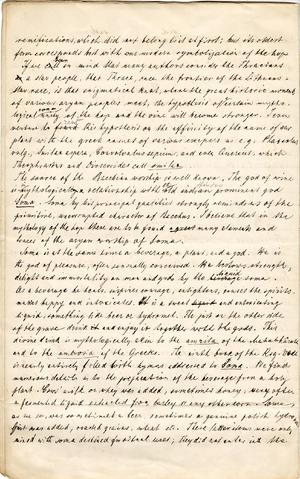 ramifications, which did not belong to it at first; but its oldest
form corresponds best with our modern symbolization of the hop.
If we bear in mind that many authors consider the Thracians
a slav people, that Thrace, near the frontier of the Lithuano-
Slav race, is that enigmatical knot, where the great historic moment
of various aryan peoples meet, the hypothesis of certain mytho-
logical unity of the hop and the vine will become stronger. I even
venture to found this hypothesis on the affinity of the name of
plant with the great names of various creepers as e.g. Phaseolus
Convolvulus sepium, and even Quercus, which
Theophrastus and Dioscorides call smilax.
The source of the Bacchian worship is well known. The god of wine
is mythologically in relationship with the indian prominent god
Soma. Soma by his principal qualities strongly reminds us of the
primitive, uncorrupted character of Bacchus. I believe that in the
mythology of the hop there are to be found many elements and
traces of the aryan worship of Soma.
Soma is at the same time a beverage, a plant, and a god. He is
the god of pleasure, often personally conceived. He bestows strength,
delight and immortality on men and gods by the liquid soma.
As a beverage he heals, inspires courage, enlightens, causes the spirits
makes happy and intoxicates. It is a sweet and intoxicating
liquid, something like beer or hydromel. The just on the other side
of the grave drink it and enjoy it together with the gods. This
divine drink is mythologically akin to the amrita of the Mahabharata
and to the ambrosia of the Greeks. The ninth book of the Rig-Veda
is nearly entirely filled with hymns addressed to Soma. We find
numerous details as to the preparation of the beverage from a holy
plant. Now milk or whey was added, sometimes honey, many often
a fermented liquid extracted from barley or any other corn. Soma,
as we see, was sometimes a beer, sometimes a genuine polish hydromel
was added, roasted grains, wheat etc. These latter were only
mixed with soma destined for ritual uses; they did not enter into the